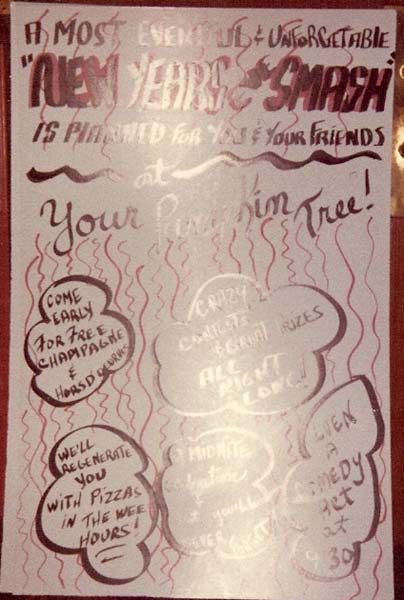 A MOST EVENTFUL & UNFORGETABLE
"NEW YEARS EVE SMASH"
IS PLANNED FOR YOU & YOUR FRIENDS
at
Your Pumpkin Tree!
COME
EARLY
FOR FREE
CHAMPAGNE
&
HORSD'OEUVRES
CRAZY
CONTESTS
& GREAT PRIZES
ALL
NIGHT
LONG!
WE'LL
REGENERATE
YOU
WITH PIZZAS
IN THE WEE
HOURS!
A MIDNITE
YOU'LL
EVEN
A
COMEDY
ACT
at
9:30